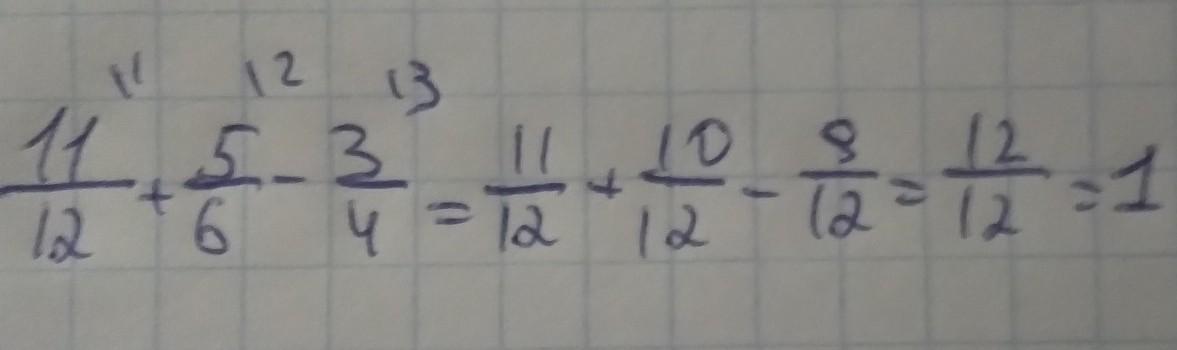 11/12 \1 + 5/6 \2 - 3/4 \3 = 11/12 + 10/12 - 9/12 = 12/12 = 1